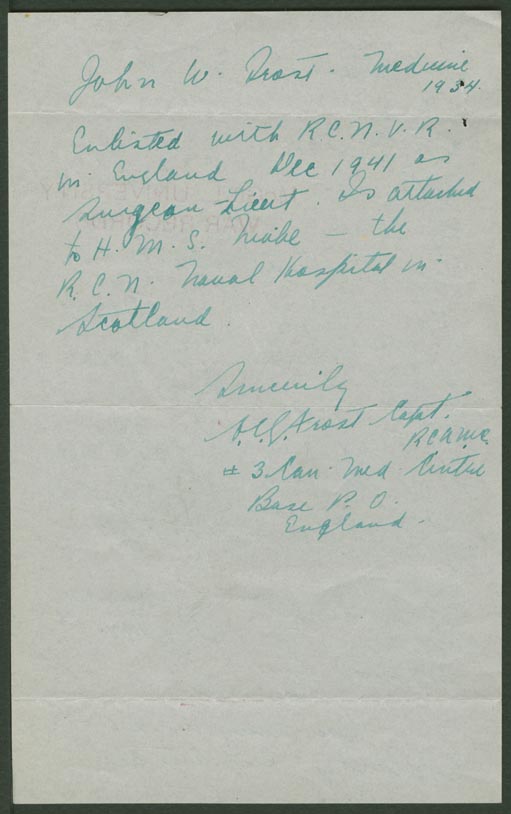 John W. Frost. Medicine
1934.
Enlisted with R.C.N.V.R.
in England Dec 1941 as
Surgeon-Lieut. Is attached
to H.M.S. Niobe – the
R.C.N. Naval Hospital in
Scotland.
Sincerely
Frost Capt.
RCAMC
# 3 Can. Med Centre
Base P.O.
England.
UNIVERSITY
WAR RECORD